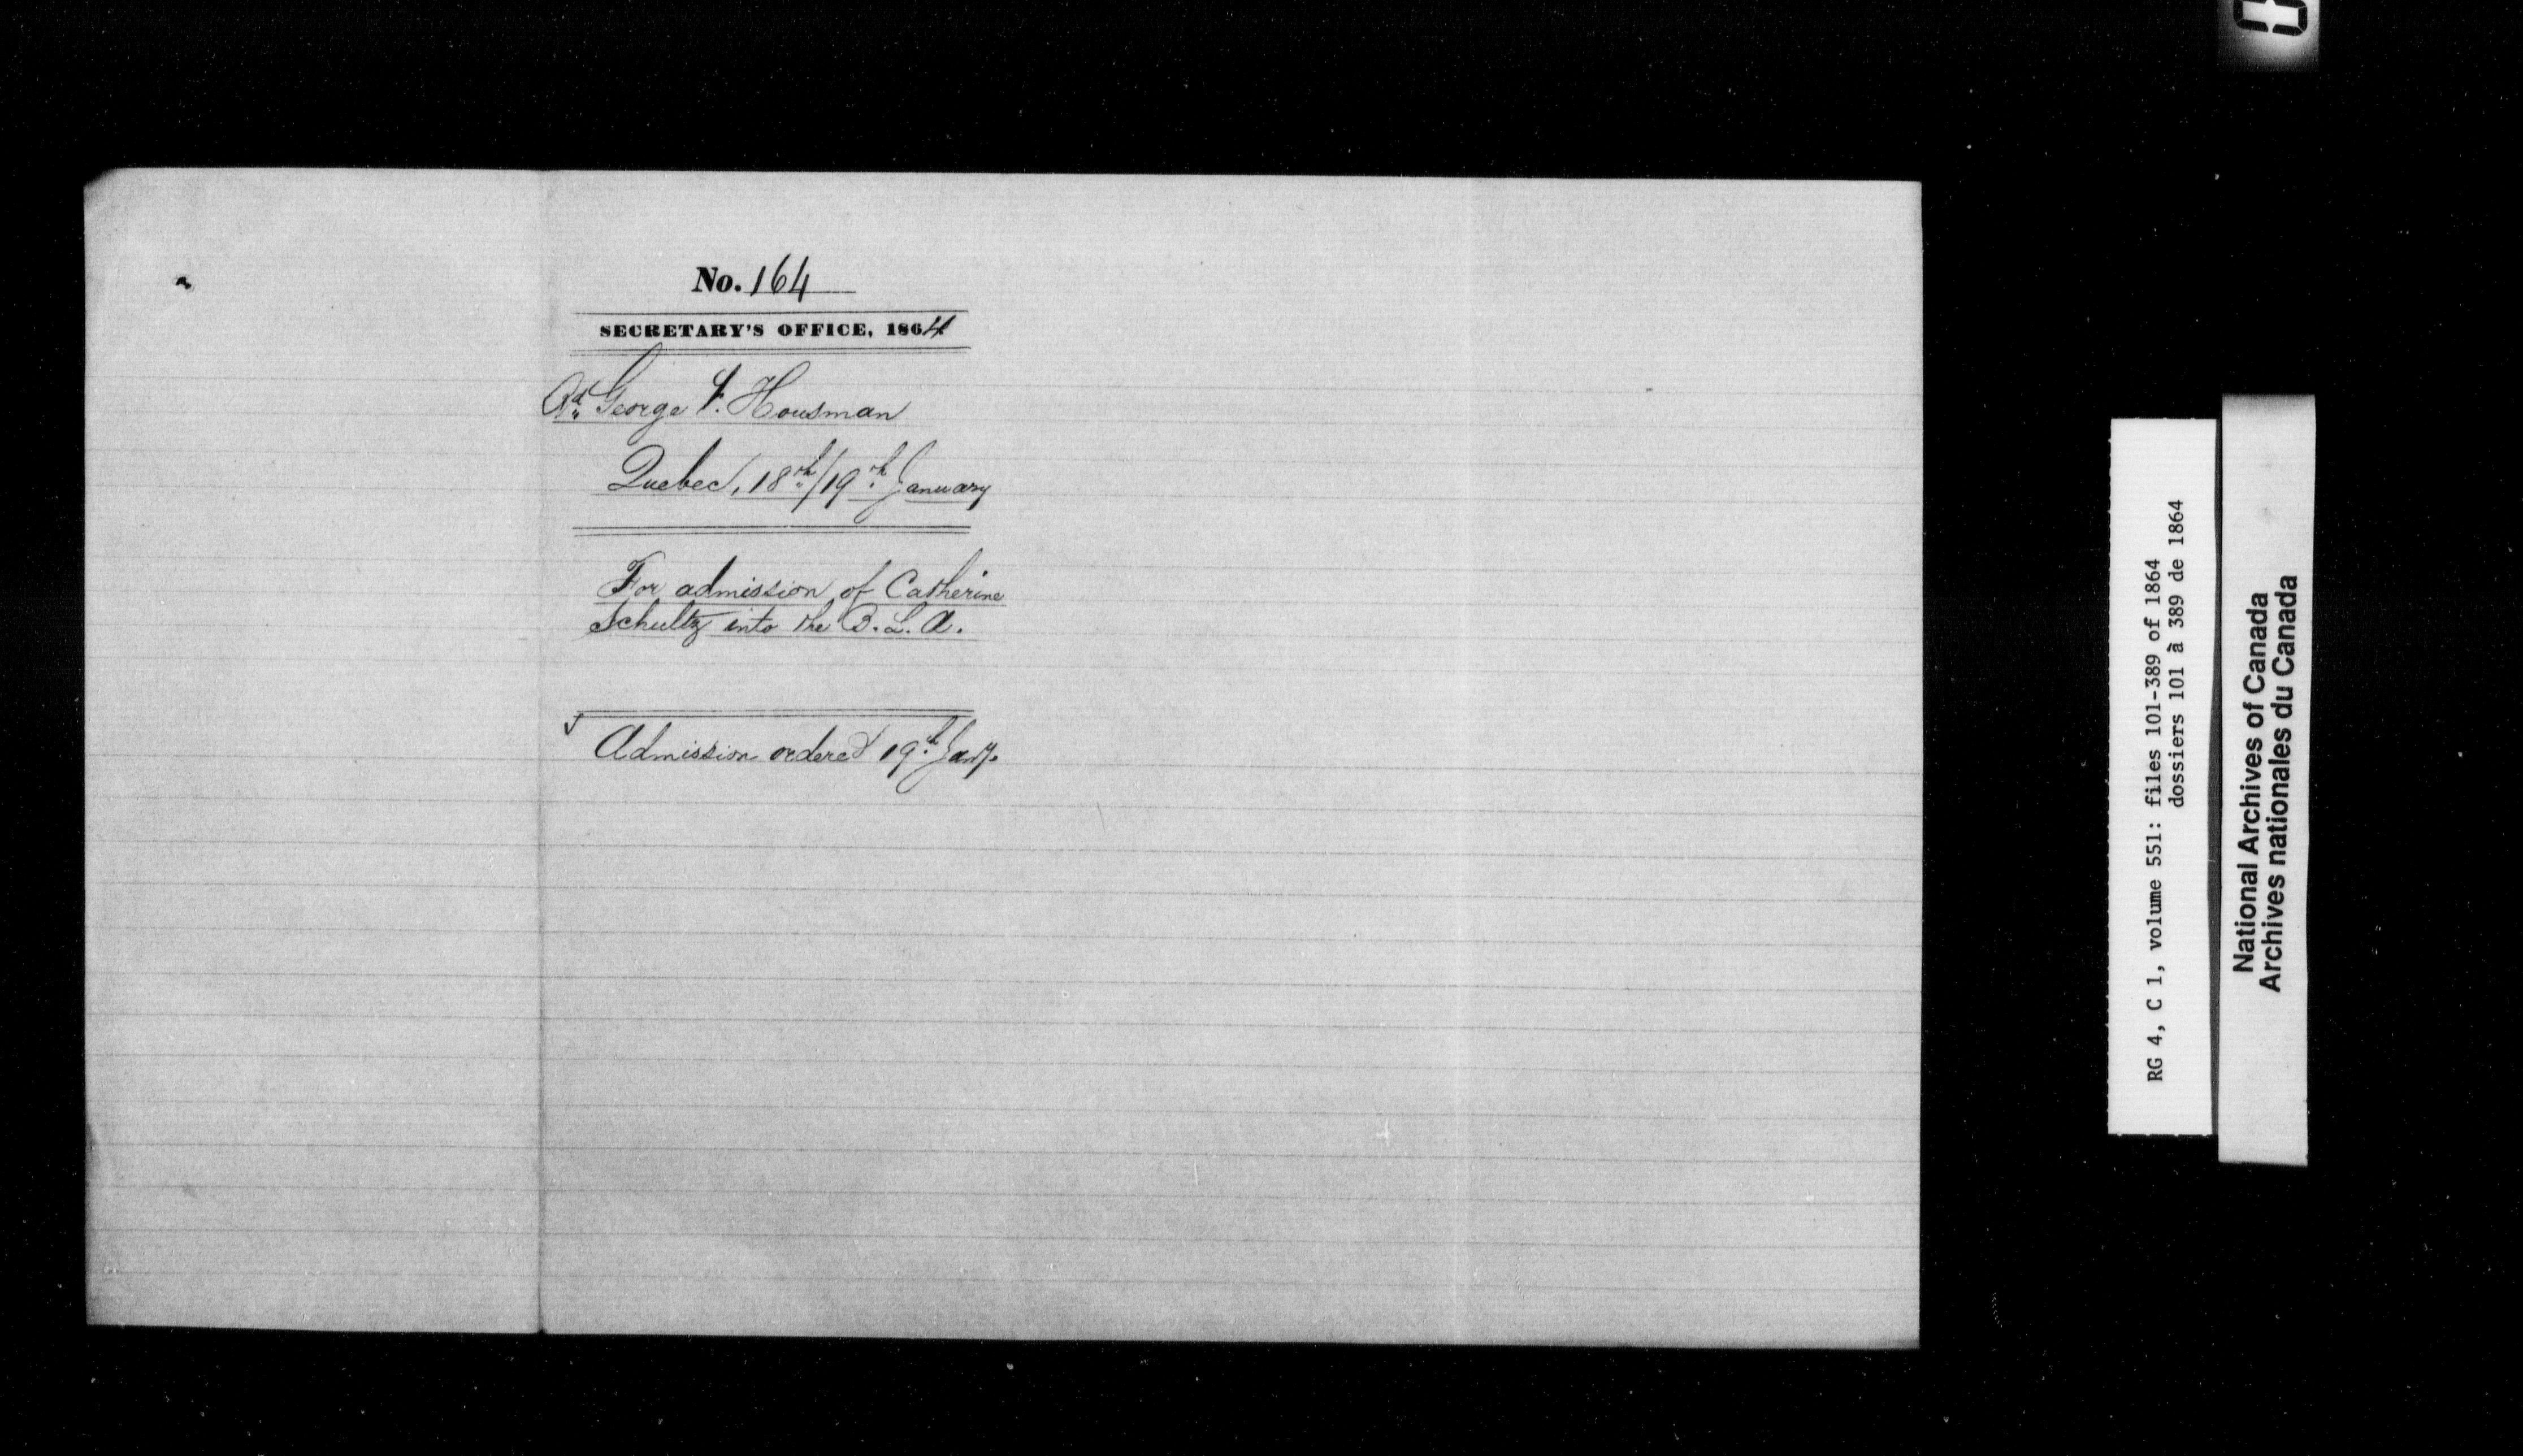 No. 164
SECRETARY'S OFFICE, 1864
Rd. George V. Housman
Quebec, 18th/19th January
For admission of Catherine
Schultz into the B. L. A.
Admission ordered 19th Jany.
RG 4, C 1, volume 551: files 101-389 of 1864
dossiers 101 à 389 de 1864
National Archives of Canada
Archives nationales du Canada